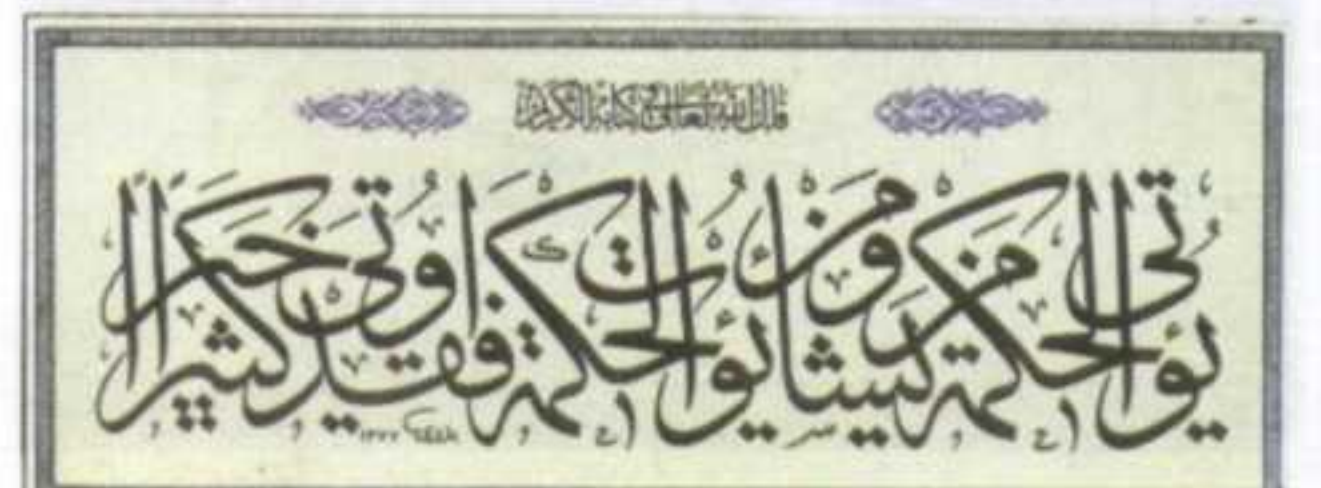 قال الله تعالى في كتابه الكريم
يؤتي الحكمة من يشاء ومن يؤت الحكمة فقد اوتي خيرا كثيرا
١٣٧٧